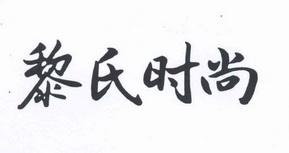 黎氏时尚